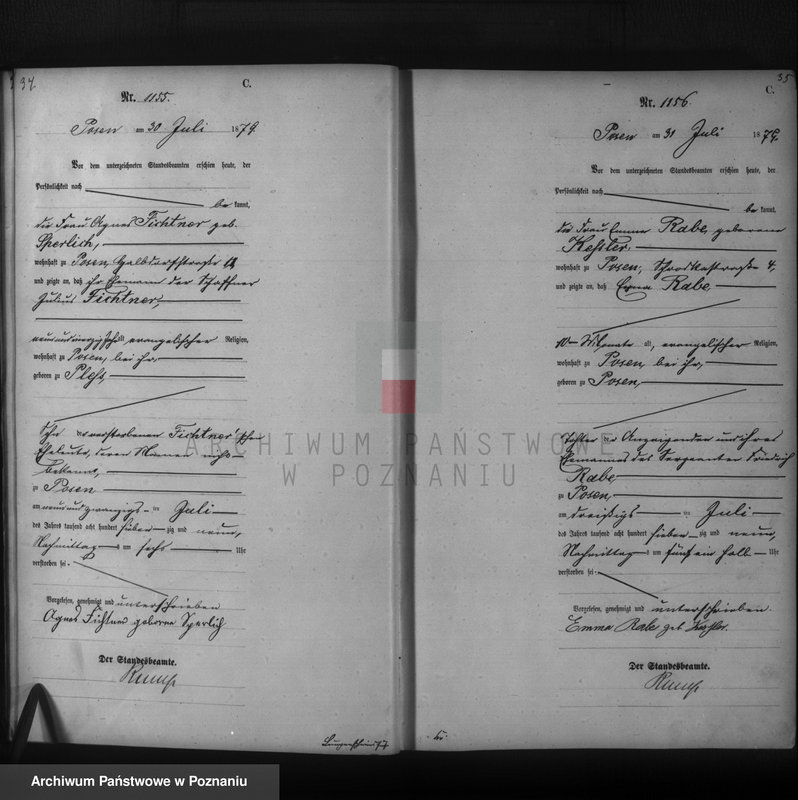 34
C.
Nr. 1155.
Posen am 30 Juli 1879.
Vor dem unterzeichneten Standesbeamten erschien heute, der
Persönlichkeit nach
be kannt,
die Frau Agnes Fichtner geb.
Sperlich,
wohnhaft zu Posen, Halbdorfstraße
und zeigte an, daß ihr Ehemann der Schaffner
Julius Fichtner,
neunundvierzig Jahr alt, evangelischer Religion,
wohnhaft zu Posen, bei ihr,
geboren zu Pleß,
Sohn der verstorbenen Fichtner'schen
Eheleute, deren Namen nicht
bekannt,
zu Posen
am neunundzwanzigsten Juli
des Jahres tausend acht hundert siebenzig und neun,
Nachmittags um sechs Uhr
verstorben sei.
Vorgelesen, genehmigt und unterschrieben
Agnes Fichtner geborene Sperlich
Der Standesbeamte.
35
C.
Nr. 1156.
Posen am 31 Juli 1879.
Vor dem unterzeichneten Standesbeamten erschien heute, der
Persönlichkeit nach
be kannt,
die Frau Emma Rabe, geborene
Keßler,
wohnhaft zu Posen, Schrodkastraße 4,
und zeigte an, daß Emma Rabe,
10 Monate alt, evangelischer Religion,
wohnhaft zu Posen, bei ihr,
geboren zu Posen,
Tochter der Anzeigenden und ihres
Ehemannes des Sergeanten Friedrich
Rabe
zu Posen,
am dreißigsten Juli
des Jahres tausend acht hundert siebenzig und neun,
Nachmittags um fünf ein halb Uhr
verstorben sei.
Vorgelesen, genehmigt und unterschrieben.
Emma Rabe geb Kessler.
Der Standesbeamte.
ARCHIWUM PAŃSTWOWE
W POZNANIU
Archiwum Państwowe w Poznaniu